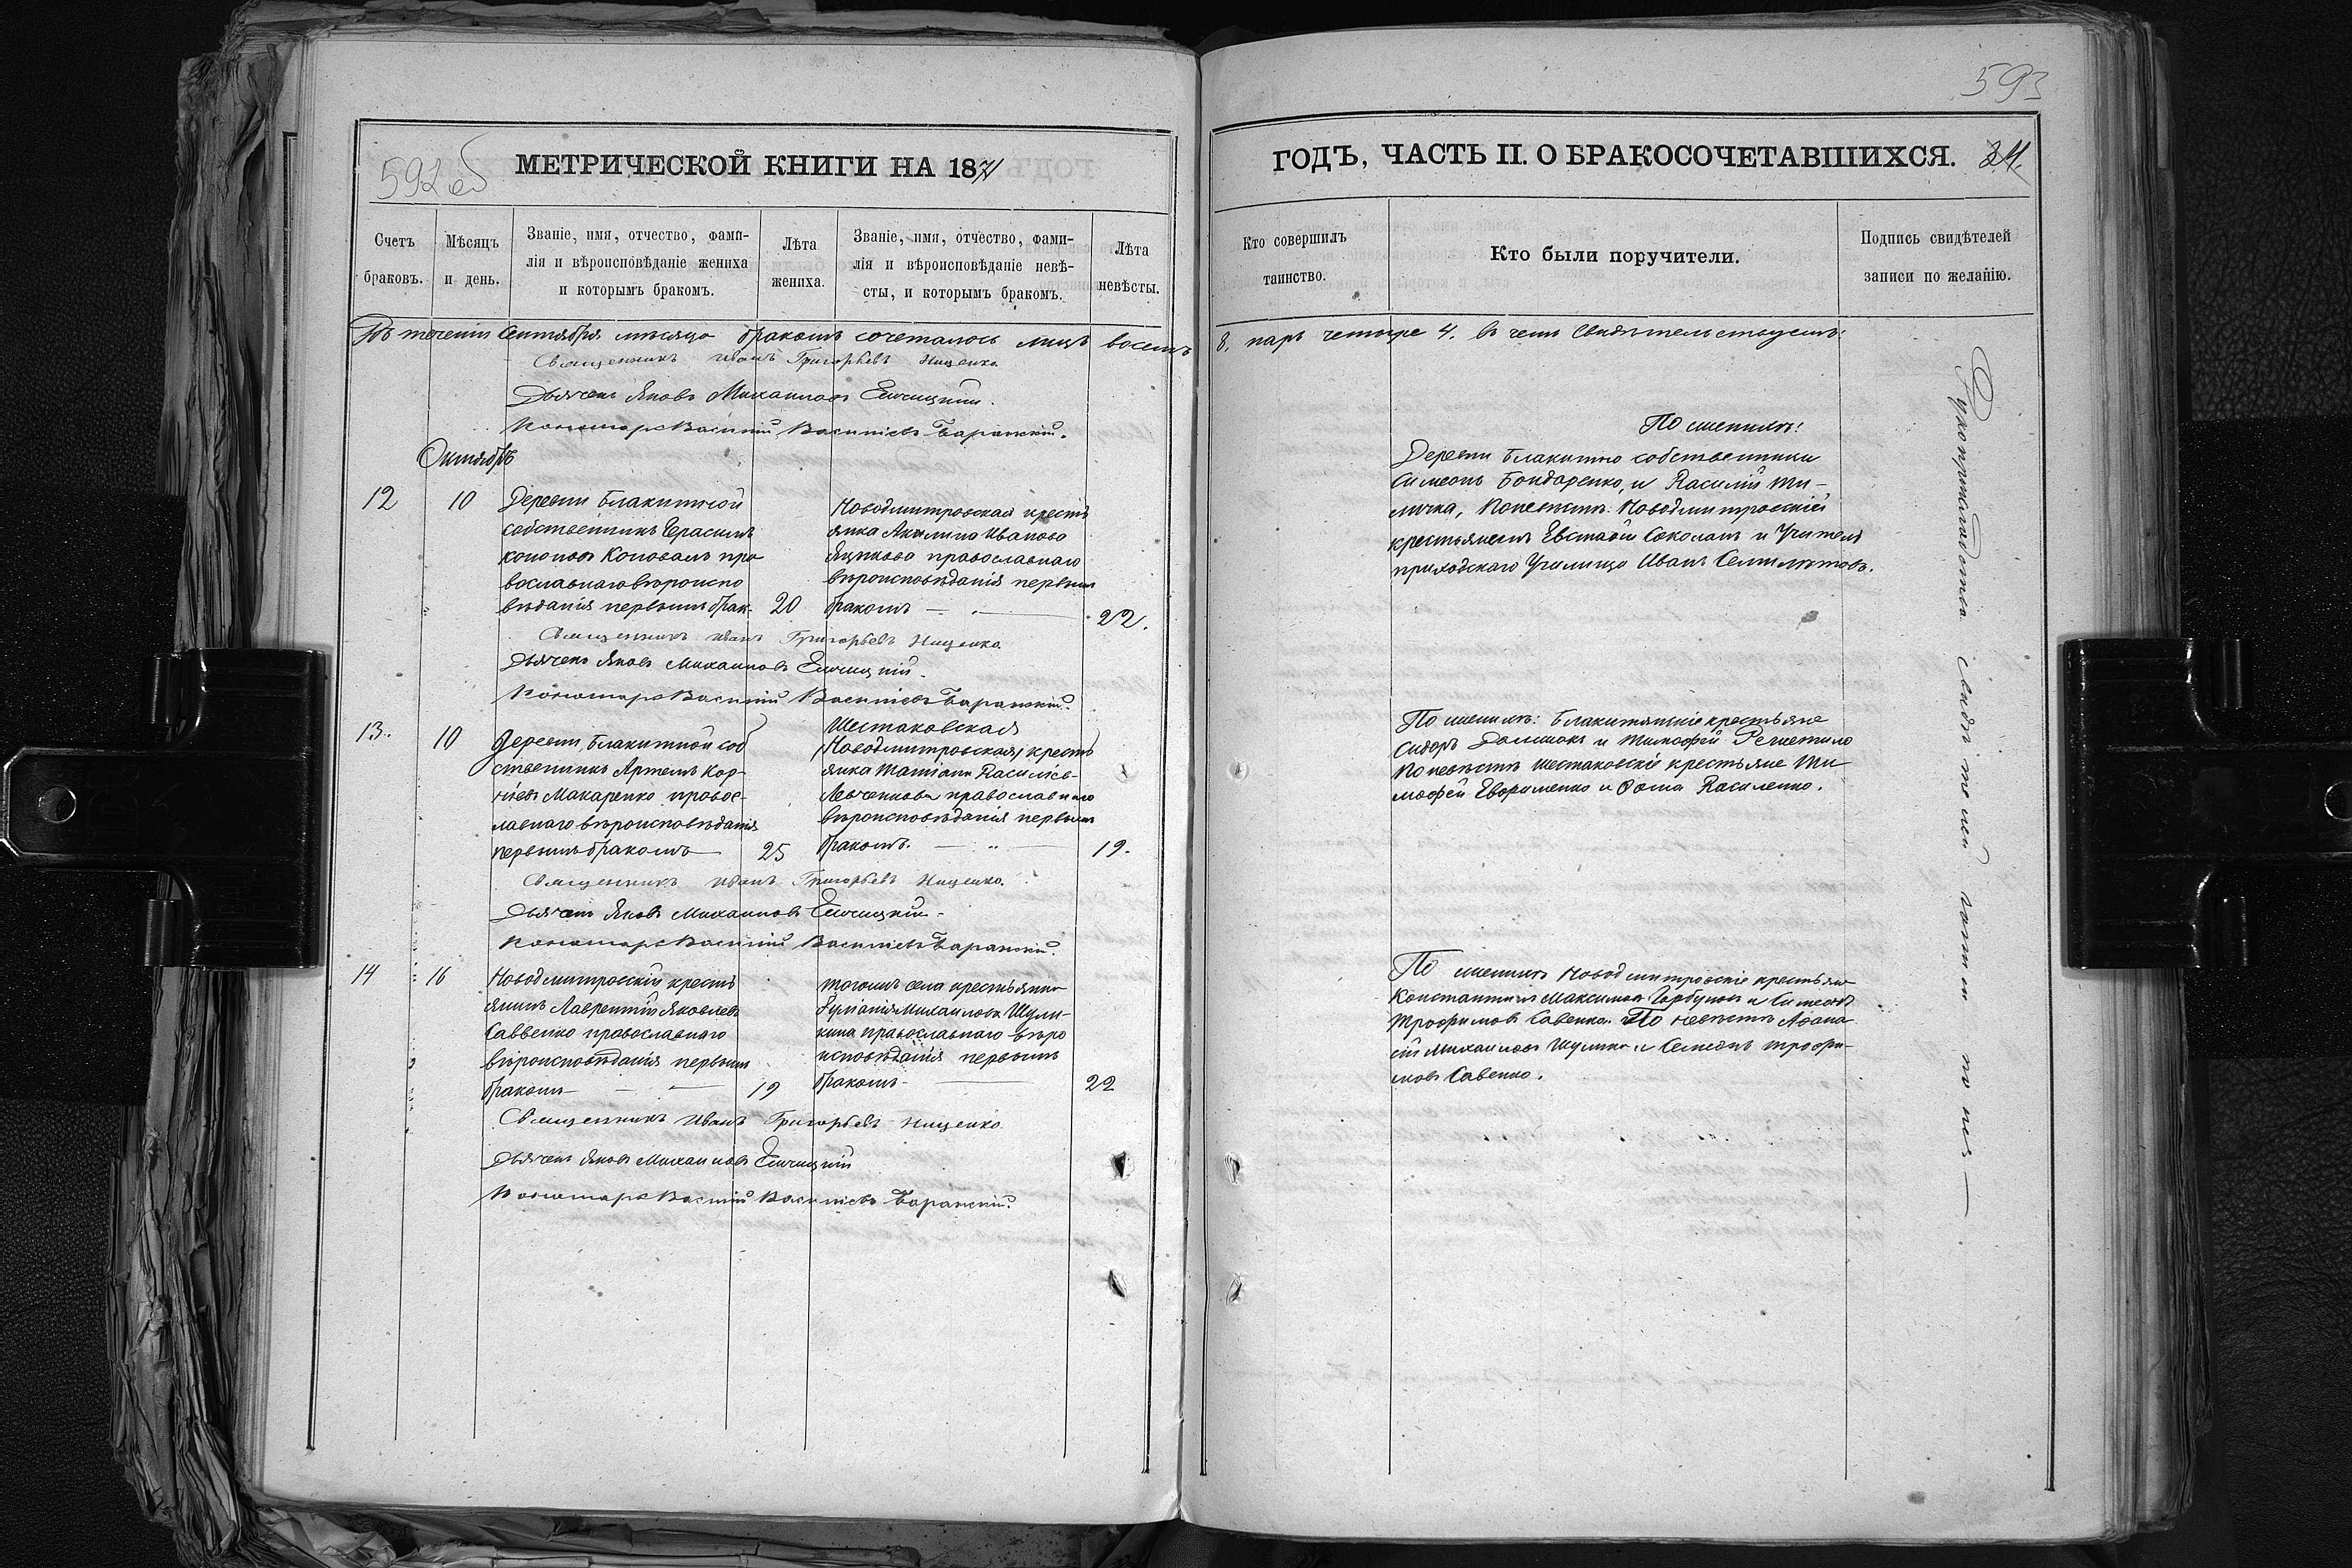 592 об
МЕТРИЧЕСКОЙ КНИГИ НА 1871
Счетъ браковъ.
Мѣсяцъ и день.
Званіе, имя, отчество, фами-
лія и вѣроисповѣданіе жениха
и которымъ бракомъ.
Лѣта жениха.
Званіе, имя, отчество, фами-
лія и вѣроисповѣданіе невѣ-
сты, и которымъ бракомъ.
Лѣта невѣсты.
Въ теченіи Сентября мѣсяца бракомъ сочеталось лицъ восемь
Священникъ Иванъ Григорьевъ Нищенко.
Дьячекъ Яковъ Михаиловъ
Пономарь Василій Василіевъ Баранскій.
Октябрь
12 10
Деревни Блакитной
собственникъ Герасимъ
Кононовъ Коновалъ пра
вославнаго вѣроиспо
вѣданія первымъ брак. 20
Новодмитровская кресть
янка Акилина Иванова
Яцукова православнаго
вѣроисповѣданія первым
бракомъ — 22.
Священникъ Иванъ Григорьевъ Нищенко.
Дьячекъ Яковъ Михаиловъ
Пономарь Василій Василіевъ Баранскій.
13. 10
Деревни Блакитной соб
ственникъ Артемъ Кор-
ніевъ Макаренко правос-
лавнаго вѣроисповѣданія
первымъ бракомъ — 25
Шестаковская
(Новодмитровская) кресть
янка Татіана Василіев-
Левченкова православнаго
вѣроисповѣданія первымъ
бракомъ. — 19.
Священникъ Иванъ Григорьевъ Нищенко.
Дьячекъ Яковъ Михаиловъ
Пономарь Василій Василіевъ Баранскій.
14 16
Новодмитровскій кресть
янинъ Лаврентій Яковлевъ
Саввенко православнаго
вѣроисповѣданія первым
бракомъ — — 19
тогожъ села крестьянка
Михаилова Шули-
кина православнаго вѣро
исповѣданія первымъ
бракомъ — 22
Священникъ Иванъ Григорьевъ Нищенко.
Дьячекъ Яковъ Михаиловъ
Пономарь Василій Василіевъ Баранскій.
593
ГОДЪ, ЧАСТЬ II. О БРАКОСОЧЕТАВШИХСЯ.
Кто совершилъ таинство.
Кто были поручители.
Подпись свидѣтелей
записи по желанію.
8. паръ четыре 4. въ чемъ Свидѣтельствуемъ:
По женихѣ:
Деревни Блакитно собственники
Симеонъ Бондаренко, и Василій Ти-
мчка, По невѣстѣ: Новодмитровскій
крестьянинъ Евстафій Соколанъ и Учитель
приходскаго Училища Иванъ Семилѣтовъ.
По женихѣ: Блакитянскіе крестьяне
Сидоръ и Тимофей Решетило
По невѣстѣ Шестаковскіе крестьяне Ти
мофей Ефоименко и Фома Василенко.
По женихѣ Новодмитровскіе крестьяне
Константинъ Максимовъ Горбунов и Симеонъ
Трофимовъ Савенко. По невѣстѣ Афана
сій Михаиловъ Шулика и Семеонъ Трофи-
мовъ Савенко.
Рукоприкладства Свидѣтелей записи по нея —